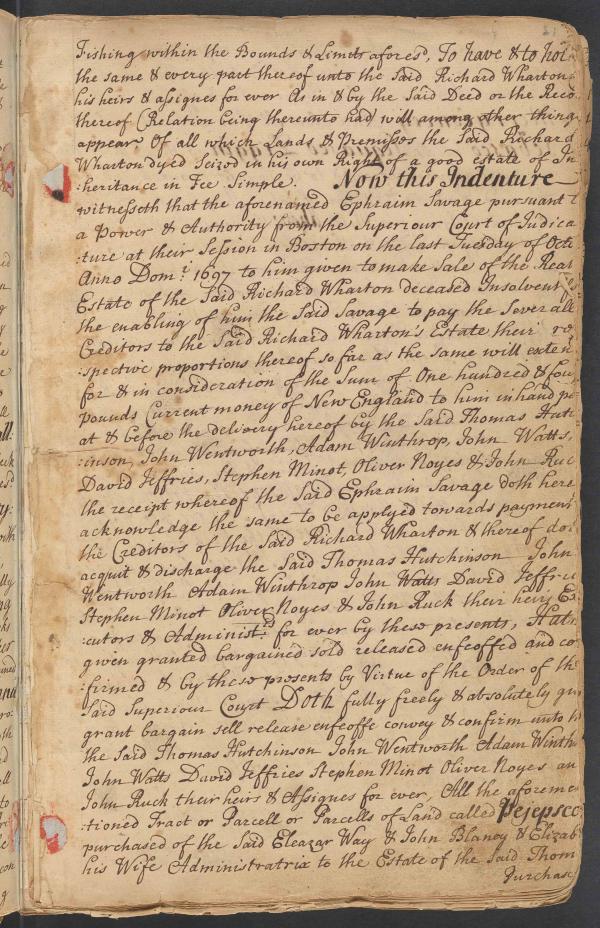 Fishing within the Bounds & Limits afores.d, To have & to hol
the same & every part thereof unto the Said Richard Wharton
his heirs & assignes for ever As in & by the Said Deed or the Reco
thereof (Relation being thereunto had) will among other thing
appear Of all which Lands & Premisses the Said Richard
Wharton dyed Seized in his own Right of a good estate of In
:heritance in Fee Simple. Now this Indenture
witnesseth that the aforenamed Ephraim Savage pursuant t
a Power & Authority from the Superiour Court of Judica
:ture at their Session in Boston on the last Tuesday of Octo
Anno Dom.i 1697 to him given to make Sale of the Real
Estate of the Said Richard Wharton deceased Insolvent
the enabling of him the Said Savage to pay the Severall
Creditors to the Said Richard Wharton's Estate their re
:spective proportions thereof so far as the same will exten
for & in consideration of the Sum of One hundred & fou
pounds Current money of New England to him in hand pa
at & before the delivery hereof by the Said Thomas Hutc
:inson, John Wentworth, Adam Winthrop, John Watts,
David Jeffries, Stephen Minot, Oliver Noyes & John Ruc
the receipt whereof the Said Ephraim Savage doth here
acknowledge the same to be applyed towards payment
the Creditors of the Said Richard Wharton & thereof do
acquit & discharge the Said Thomas Hutchinson John
Wentworth Adam Winthrop John Watts David Jeffrie
Stephen Minot Oliver Noyes & John Ruck their heirs Ex
:cutors & Administ.rs for ever by these presents, Hath
given granted bargained sold released enfeoffed and co
:firmed & by these presents by Virtue of the Order of the
Said Superiour Court Doth fully freely & absolutely giv
grant bargain sell release enfeoffe convey & confirm unto
the Said Thomas Hutchinson John Wentworth Adam Winth
John Watts David Jeffries Stephen Minot Oliver Noyes an
John Ruck their heirs & Assignes for ever, All the aforeme
:tioned Tract or Parcell or Parcells of Land called Pejepsco
purchased of the Said Eleazar Way & John Blaney & Elizab
his Wife Administratrix to the Estate of the Said Thom
Purchase